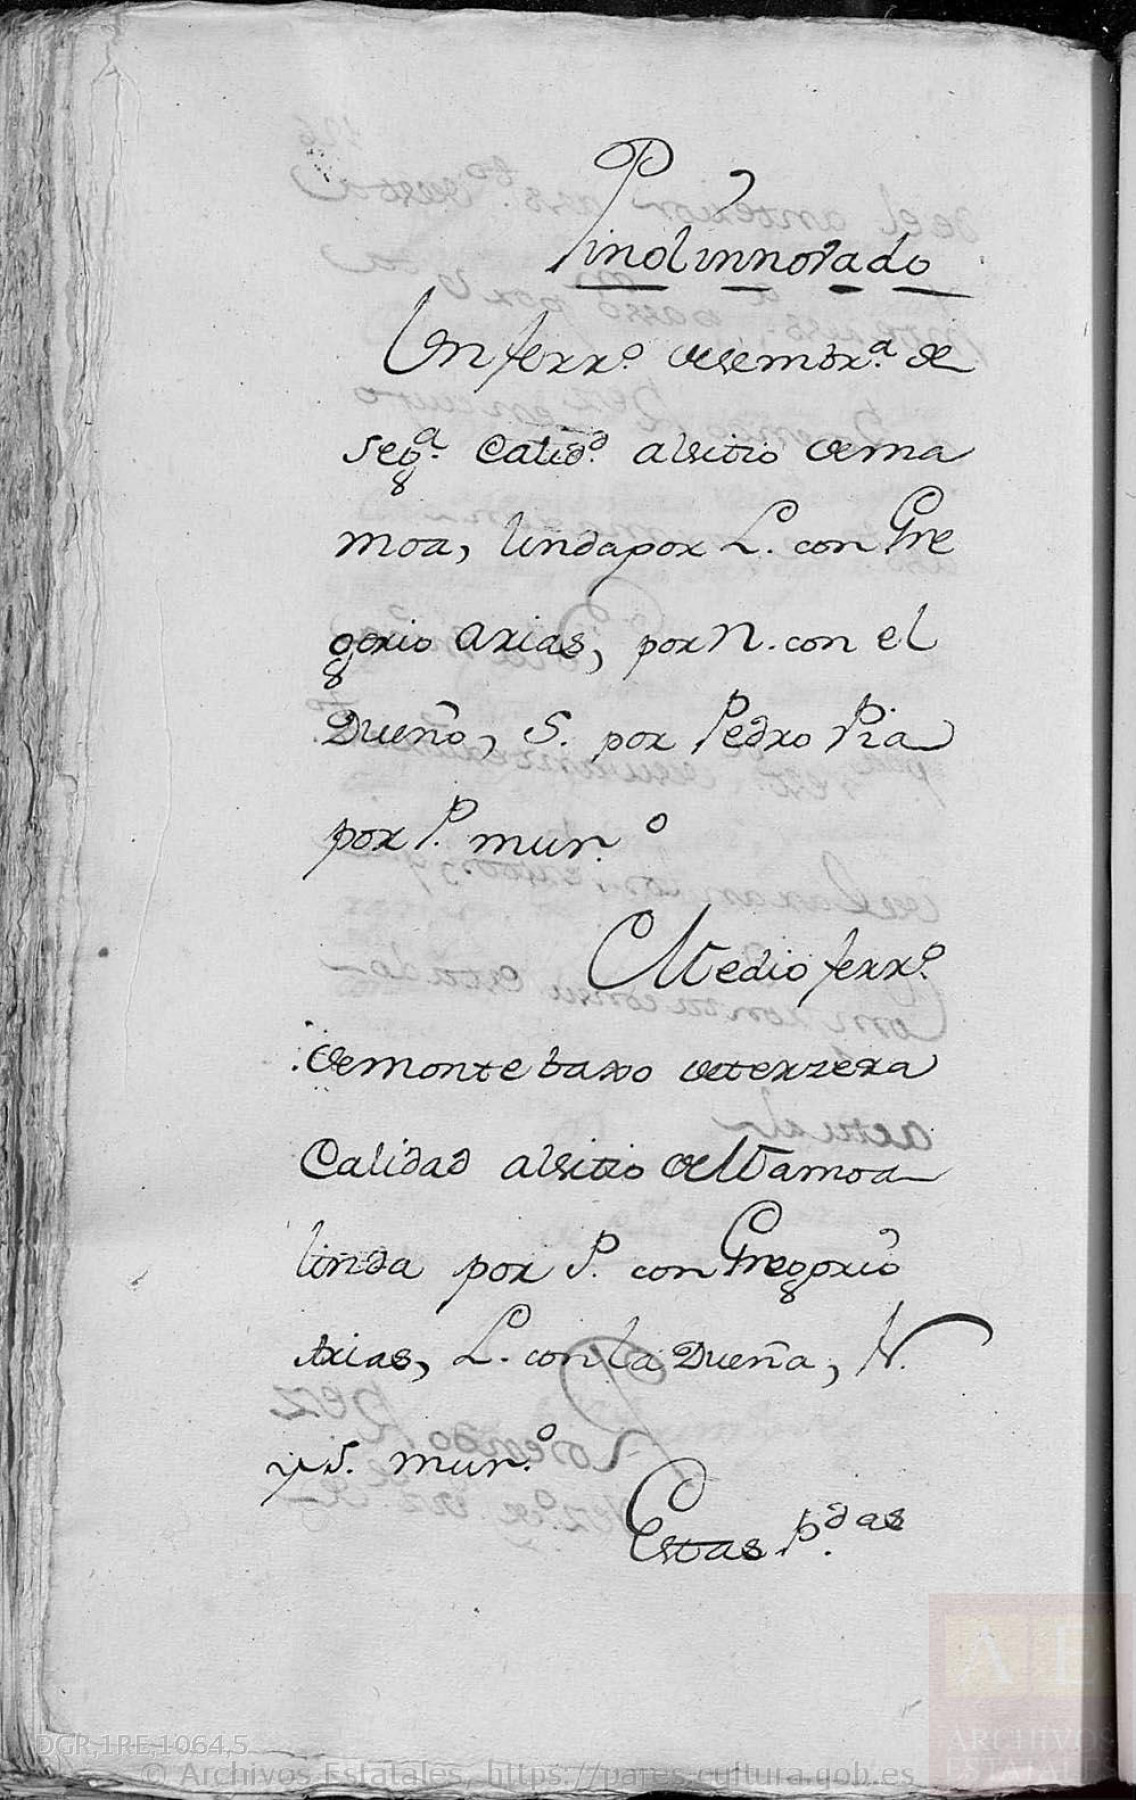 Pinol innovado
Un ferr.º desembr.ª de
seg.ª Calid.d alsitio dema
moa, lindapor L. con Gre
gorio Arias, por N. con el
Dueño, S. por Pedro Pia
por P. mur.º
Medio ferr.º
demonte baxo deterzera
Calidad alsitio deMamoa
linda por P. con Gregorio
Arias, L. con la Dueña, N.
y S. mur.º
Estas P.das
DGR,1RE,1064,5
© Archivos Estatales, https://pares.cultura.gob.es
AE
ARCHIVOS
ESTATALES